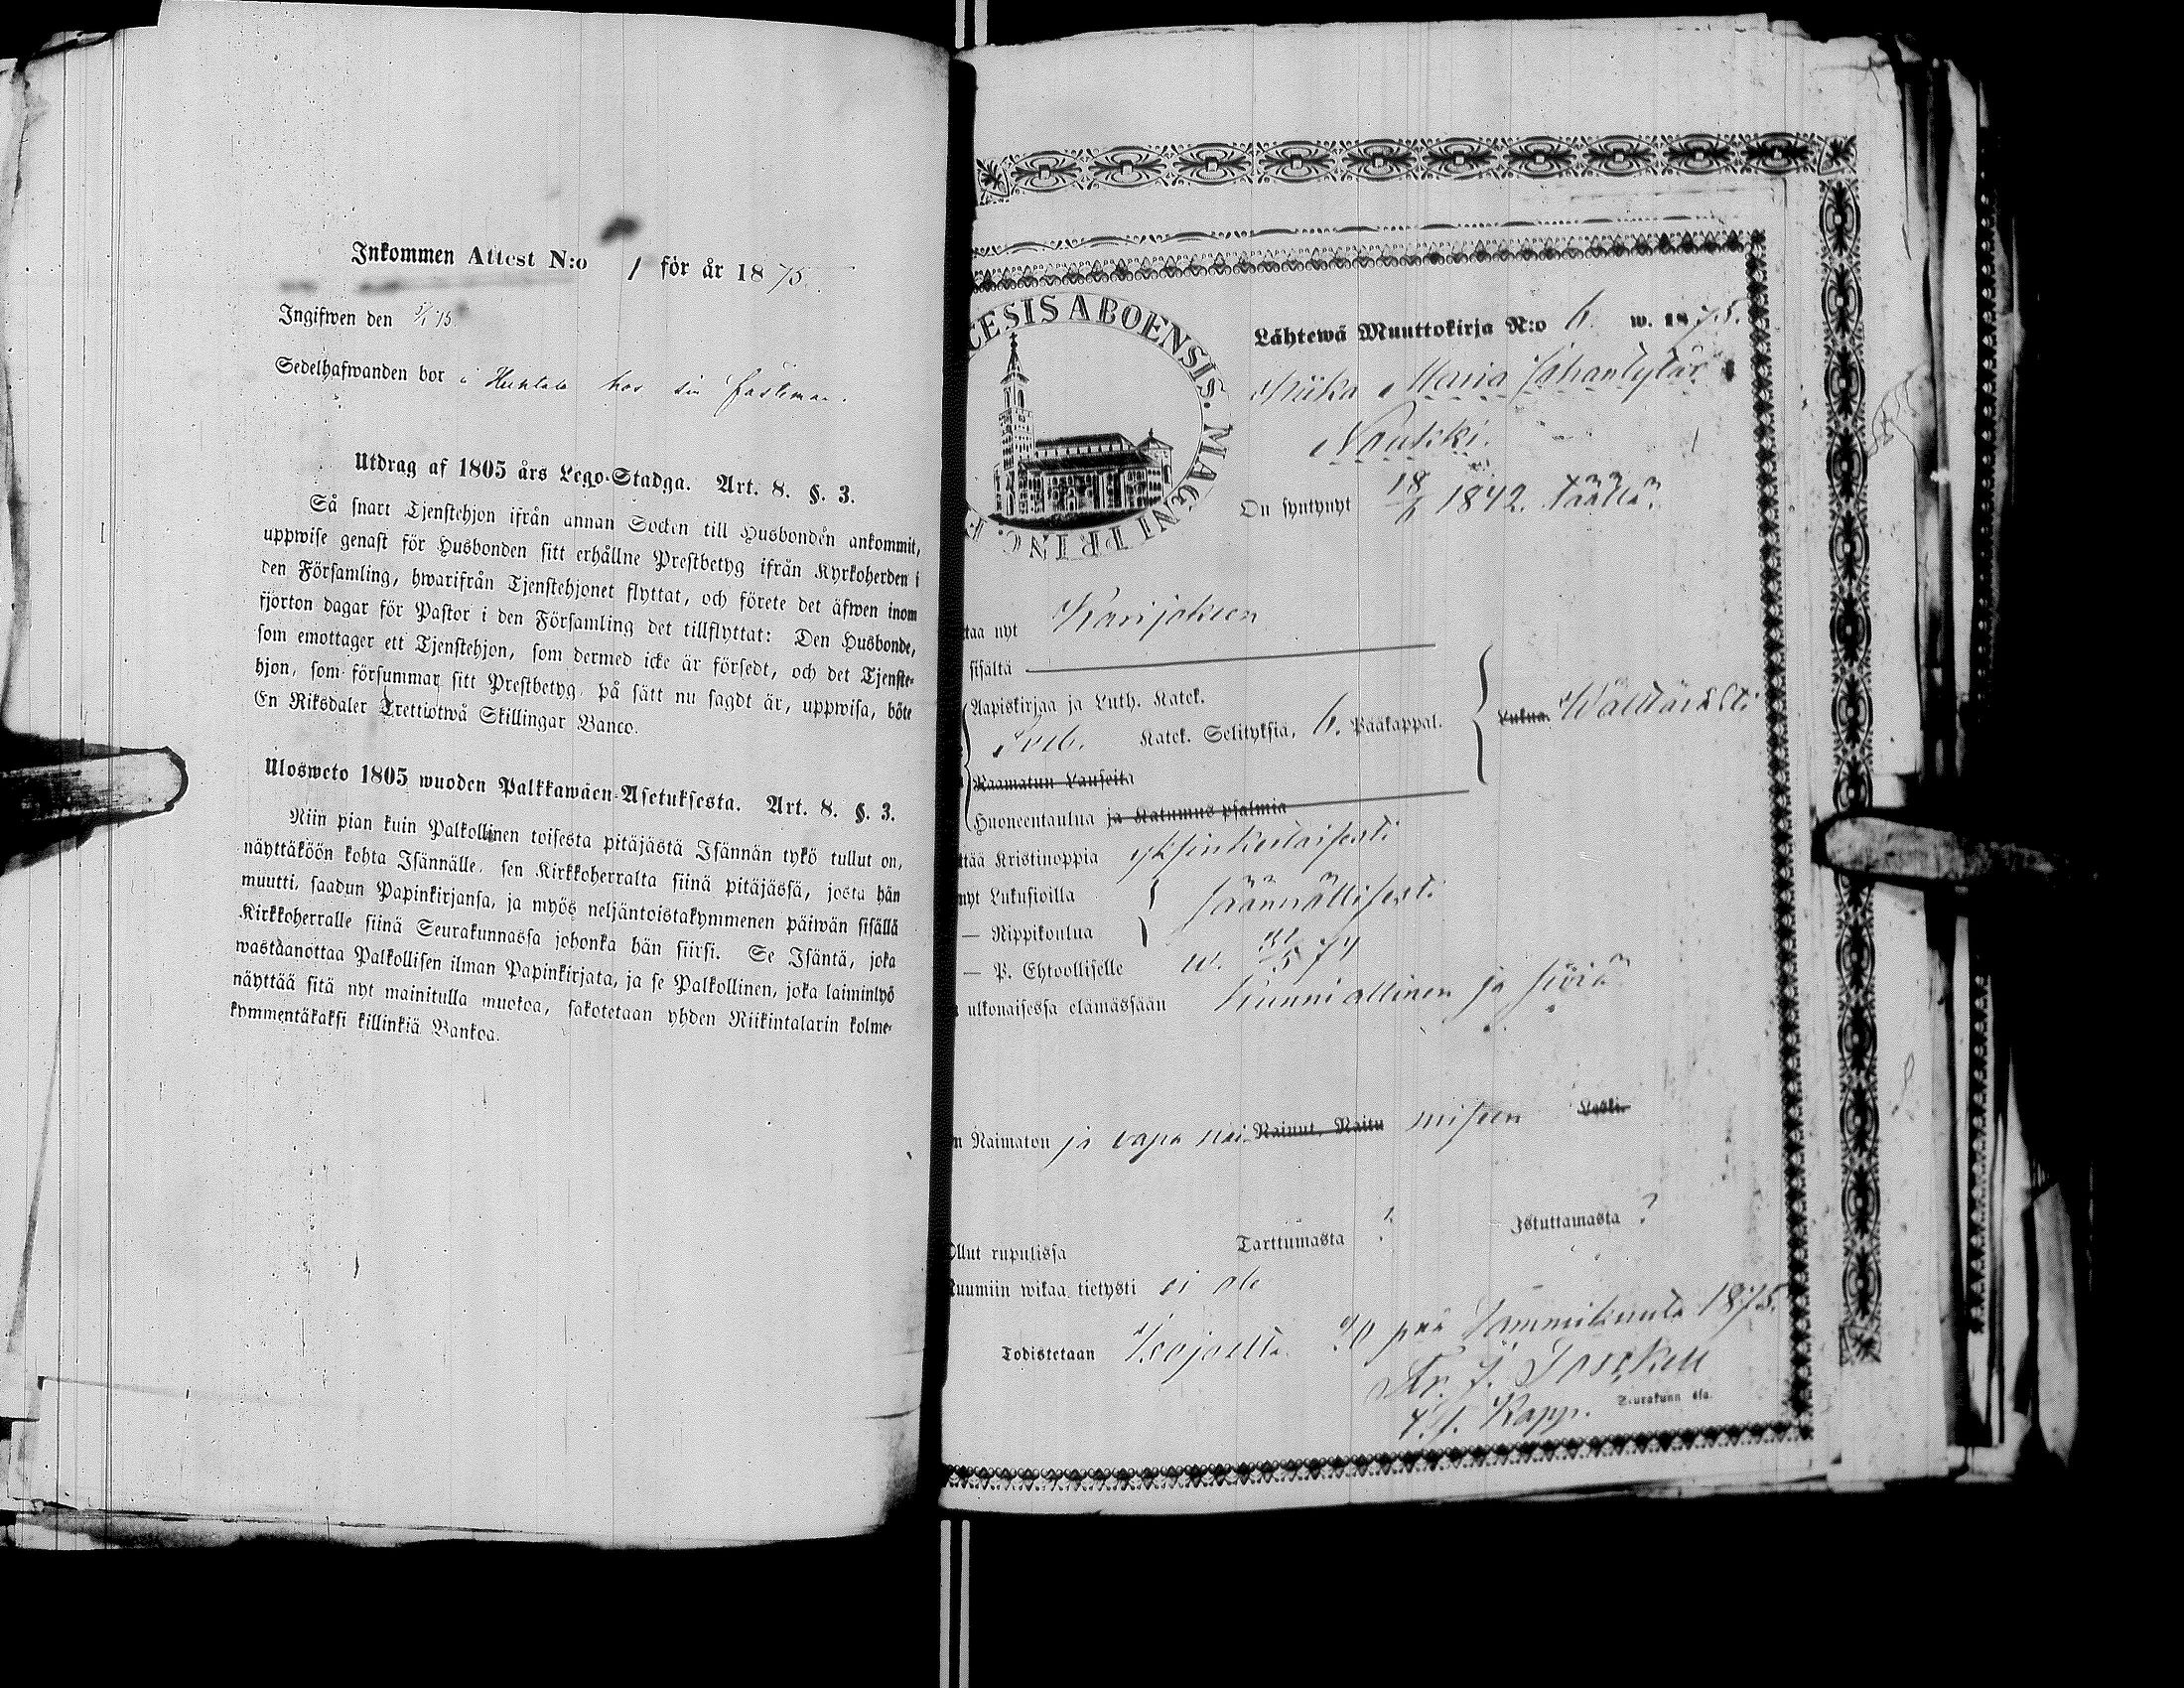 Inkommen Attest N:o 1 för år 1875.
Ingifwen den
Sedelhafwanden bor i hos sin fästeman.
Utdrag af 1805 års Lego-Stadga. Art. 8. §. 3.
Så snart Tjenstehjon ifrån annan Socken till Husbonden ankommit,
uppwise genast för Husbonden sitt erhållne Prestbetyg ifrån Kyrkoherden i
den Församling, hwarifrån Tjenstehjonet flyttat, och förete det äfwen inom
fjorton dagar för Pastor i den Församling det tillflyttat: Den Husbonde,
som emottager ett Tjenstehjon, som dermed icke är försedt, och det Tjenste-
hjon, som försummar sitt Prestbetyg, på sätt nu sagdt är, uppwisa, böte
En Riksdaler Trettiotwå Skillingar Banco.
Ulosweto 1805 wuoden Palkkawäen-Asetuksesta. Art. 8. §. 3.
Niin pian kuin Palkollinen toisesta pitäjästä Isännän tykö tullut on,
näyttäköön kohta Isännälle, sen Kirkkoherralta siinä pitäjässä, josta hän
muutti, saadun Papinkirjansa, ja myös neljäntoistakymmenen päiwän sisällä
Kirkkoherralle siinä Seurakunnassa johonka hän siirsi. Se Isäntä, joka
wastaanottaa Palkollisen ilman Papinkirjata, ja se Palkollinen, joka laiminlyö
näyttää sitä nyt mainitulla muotoa, sakotetaan yhden Riikintalarin kolme-
kymmentäkaksi killinkiä Bankoa.
CESIS ABOENSIS. MAGNI PRINC. F
Lähtewä Muuttokirja N:o 6. w. 1875.
Miika Maria Johantytär
On syntynyt 18/6 1842. täällä.
taa nyt Karijokeen
sisältä
Aapiskirjaa ja Luth. Katek.
Sveb. Katek. Selityksiä, 6. Pääkappal.
Lukua. Wälttäwästi
Raamatun Lauseita
Huoneentaulua ja Katumus psalmia
ttää Kristinoppia yksinkertaisesti
nyt Lukusioilla
säännöllisesti
— Rippikoulua
— P. Ehtoolliselle w. 31/5 74
ulkonaisessa elämässään kunniallinen ja siviä
n Naimaton ja vapa nai Nainut, Naitu miseen Leski.
Ollut rupulissa Tarttumasta ? Istuttamasta ?
Ruumiin wikaa tietysti ei ole
Todistetaan Isojoella. 30 pnä Tammikuuta 1875.
Fr. J.
V. t. Kapp. Seurakunn